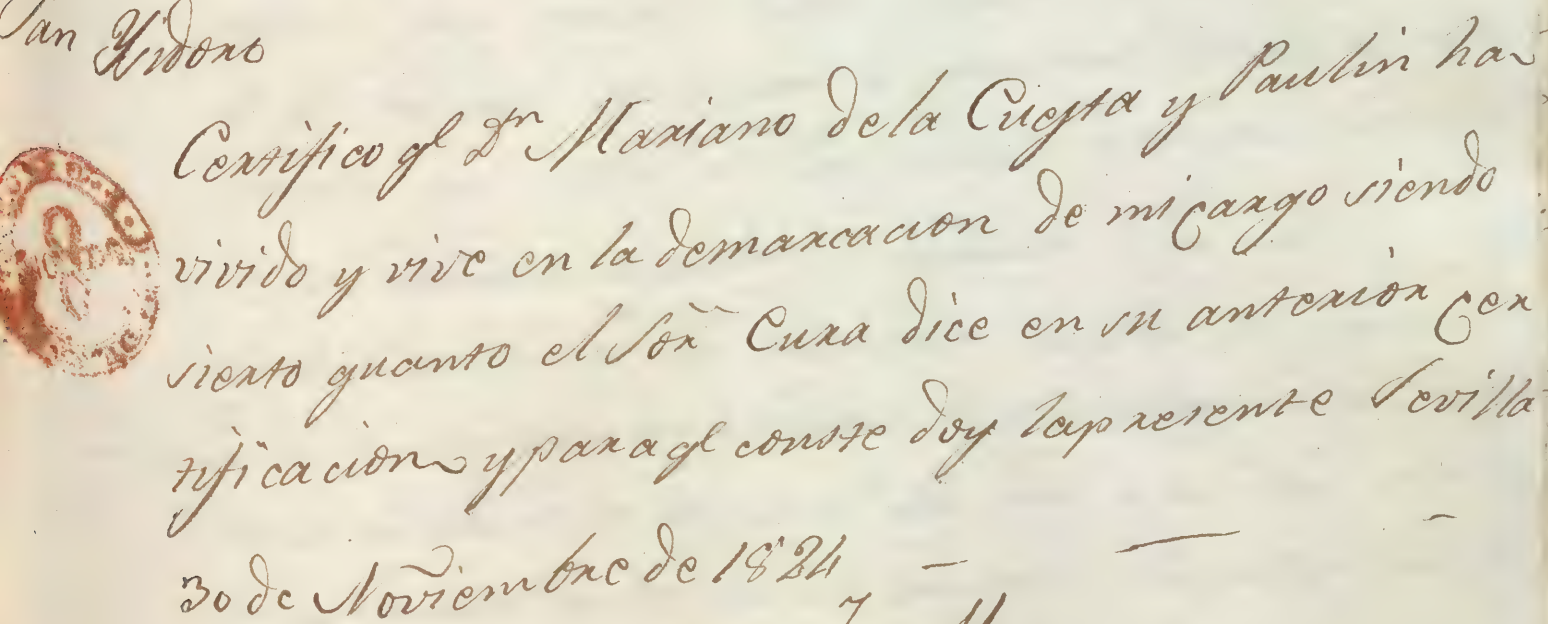 San Ysidoro
Certifico ql Dn Mariano de la Cuesta y Paulin ha
vivido y vive en la demarcacion de mi cargo siendo
sierto quanto el Sor Cura dice en su anterior cer
tificacion y para ql conste doy la presente Sevilla
30 de Noviembre de 1824